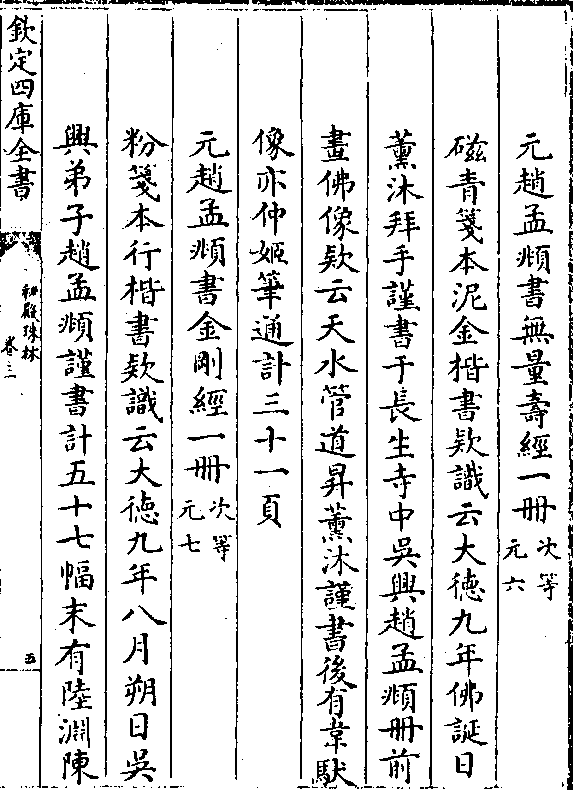 元趙孟頫書無量壽經一冊次等元六
磁青箋本泥金楷書欵識云大德九年佛誕日
薰沐拜手謹書于長生寺中吳興趙孟頫冊前
畫佛像欵云天水管道昇薰沐謹書後有韋馱
像亦仲姬筆通計三十一頁
元趙孟頫書金剛經一冊次等元七
粉箋本行楷書欵識云大徳九年八月朔日吳
興弟子趙孟頫謹書計五十七幅末有陸淵陳
欽定四庫全書
秘殿珠林
卷三
五